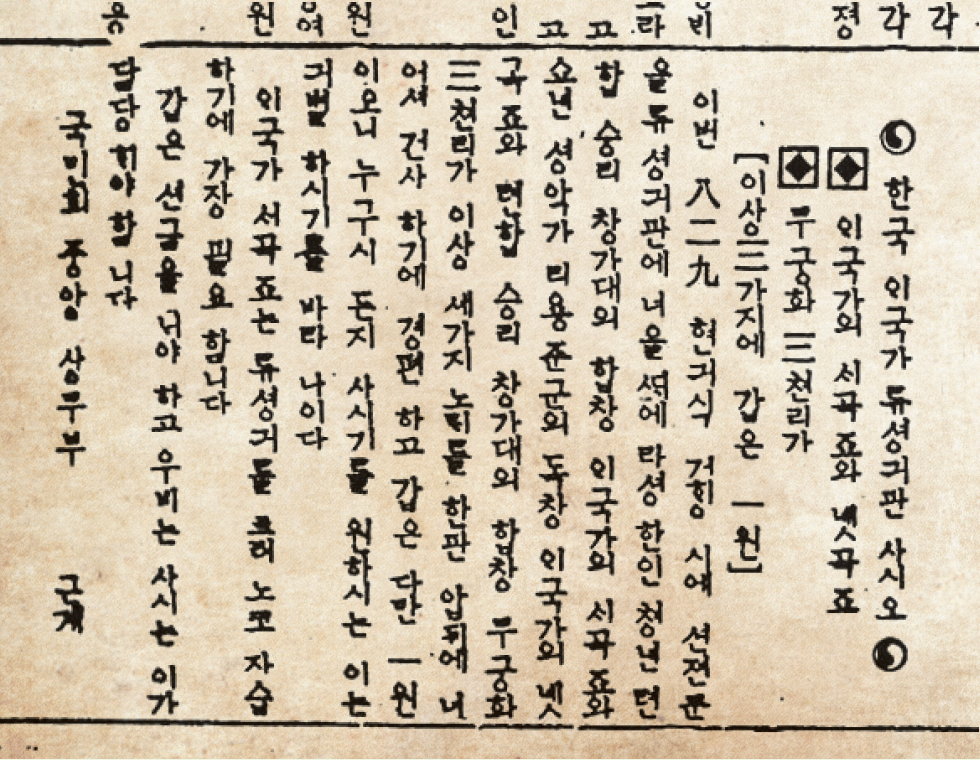 각
각
졍
비
라
고
고
인
원
여
원
응
한국 ᄋᆡ국가 류셩긔판 사시오
ᄋᆡ국가의 ᄉᆡ곡죠와 녯곡죠
무궁화 三천리가
[이상 三가지에 갑은 一원]
이번 八二九 현긔식 거ᄒᆡᆼ 시에 션젼문
을 류셩긔판에 너을 ᄯᅢ에 라셩 한인 쳥년 련
합 승리 창가대의 합창 ᄋᆡ국가의 ᄉᆡ곡죠와
쇼년 셩악가 리용쥰군의 독창 ᄋᆡ국가의 녯
곡죠와 련합 승리 창가대의 합창 무궁화
三천리가 이상 세가지 노ᄅᆡ를 한판 압뒤에 너
어셔 건사 하기에 경편 하고 갑은 다만 一원
이오니 누구시 든지 사시기를 원하시는 이는
긔별 하시기를 바라 나이다
ᄋᆡ국가 ᄉᆡ곡죠는 류셩긔를 트러 노코 자습
하기에 가장 필요 함니다
갑은 션금을 ᄂᆡ야 하고 우비는 사시는 이가
담당 하야 합니다
국민회 중앙 상무부 근계